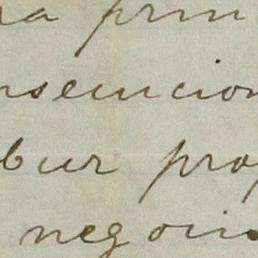 a prin
nsecucion
bur prop
negoin